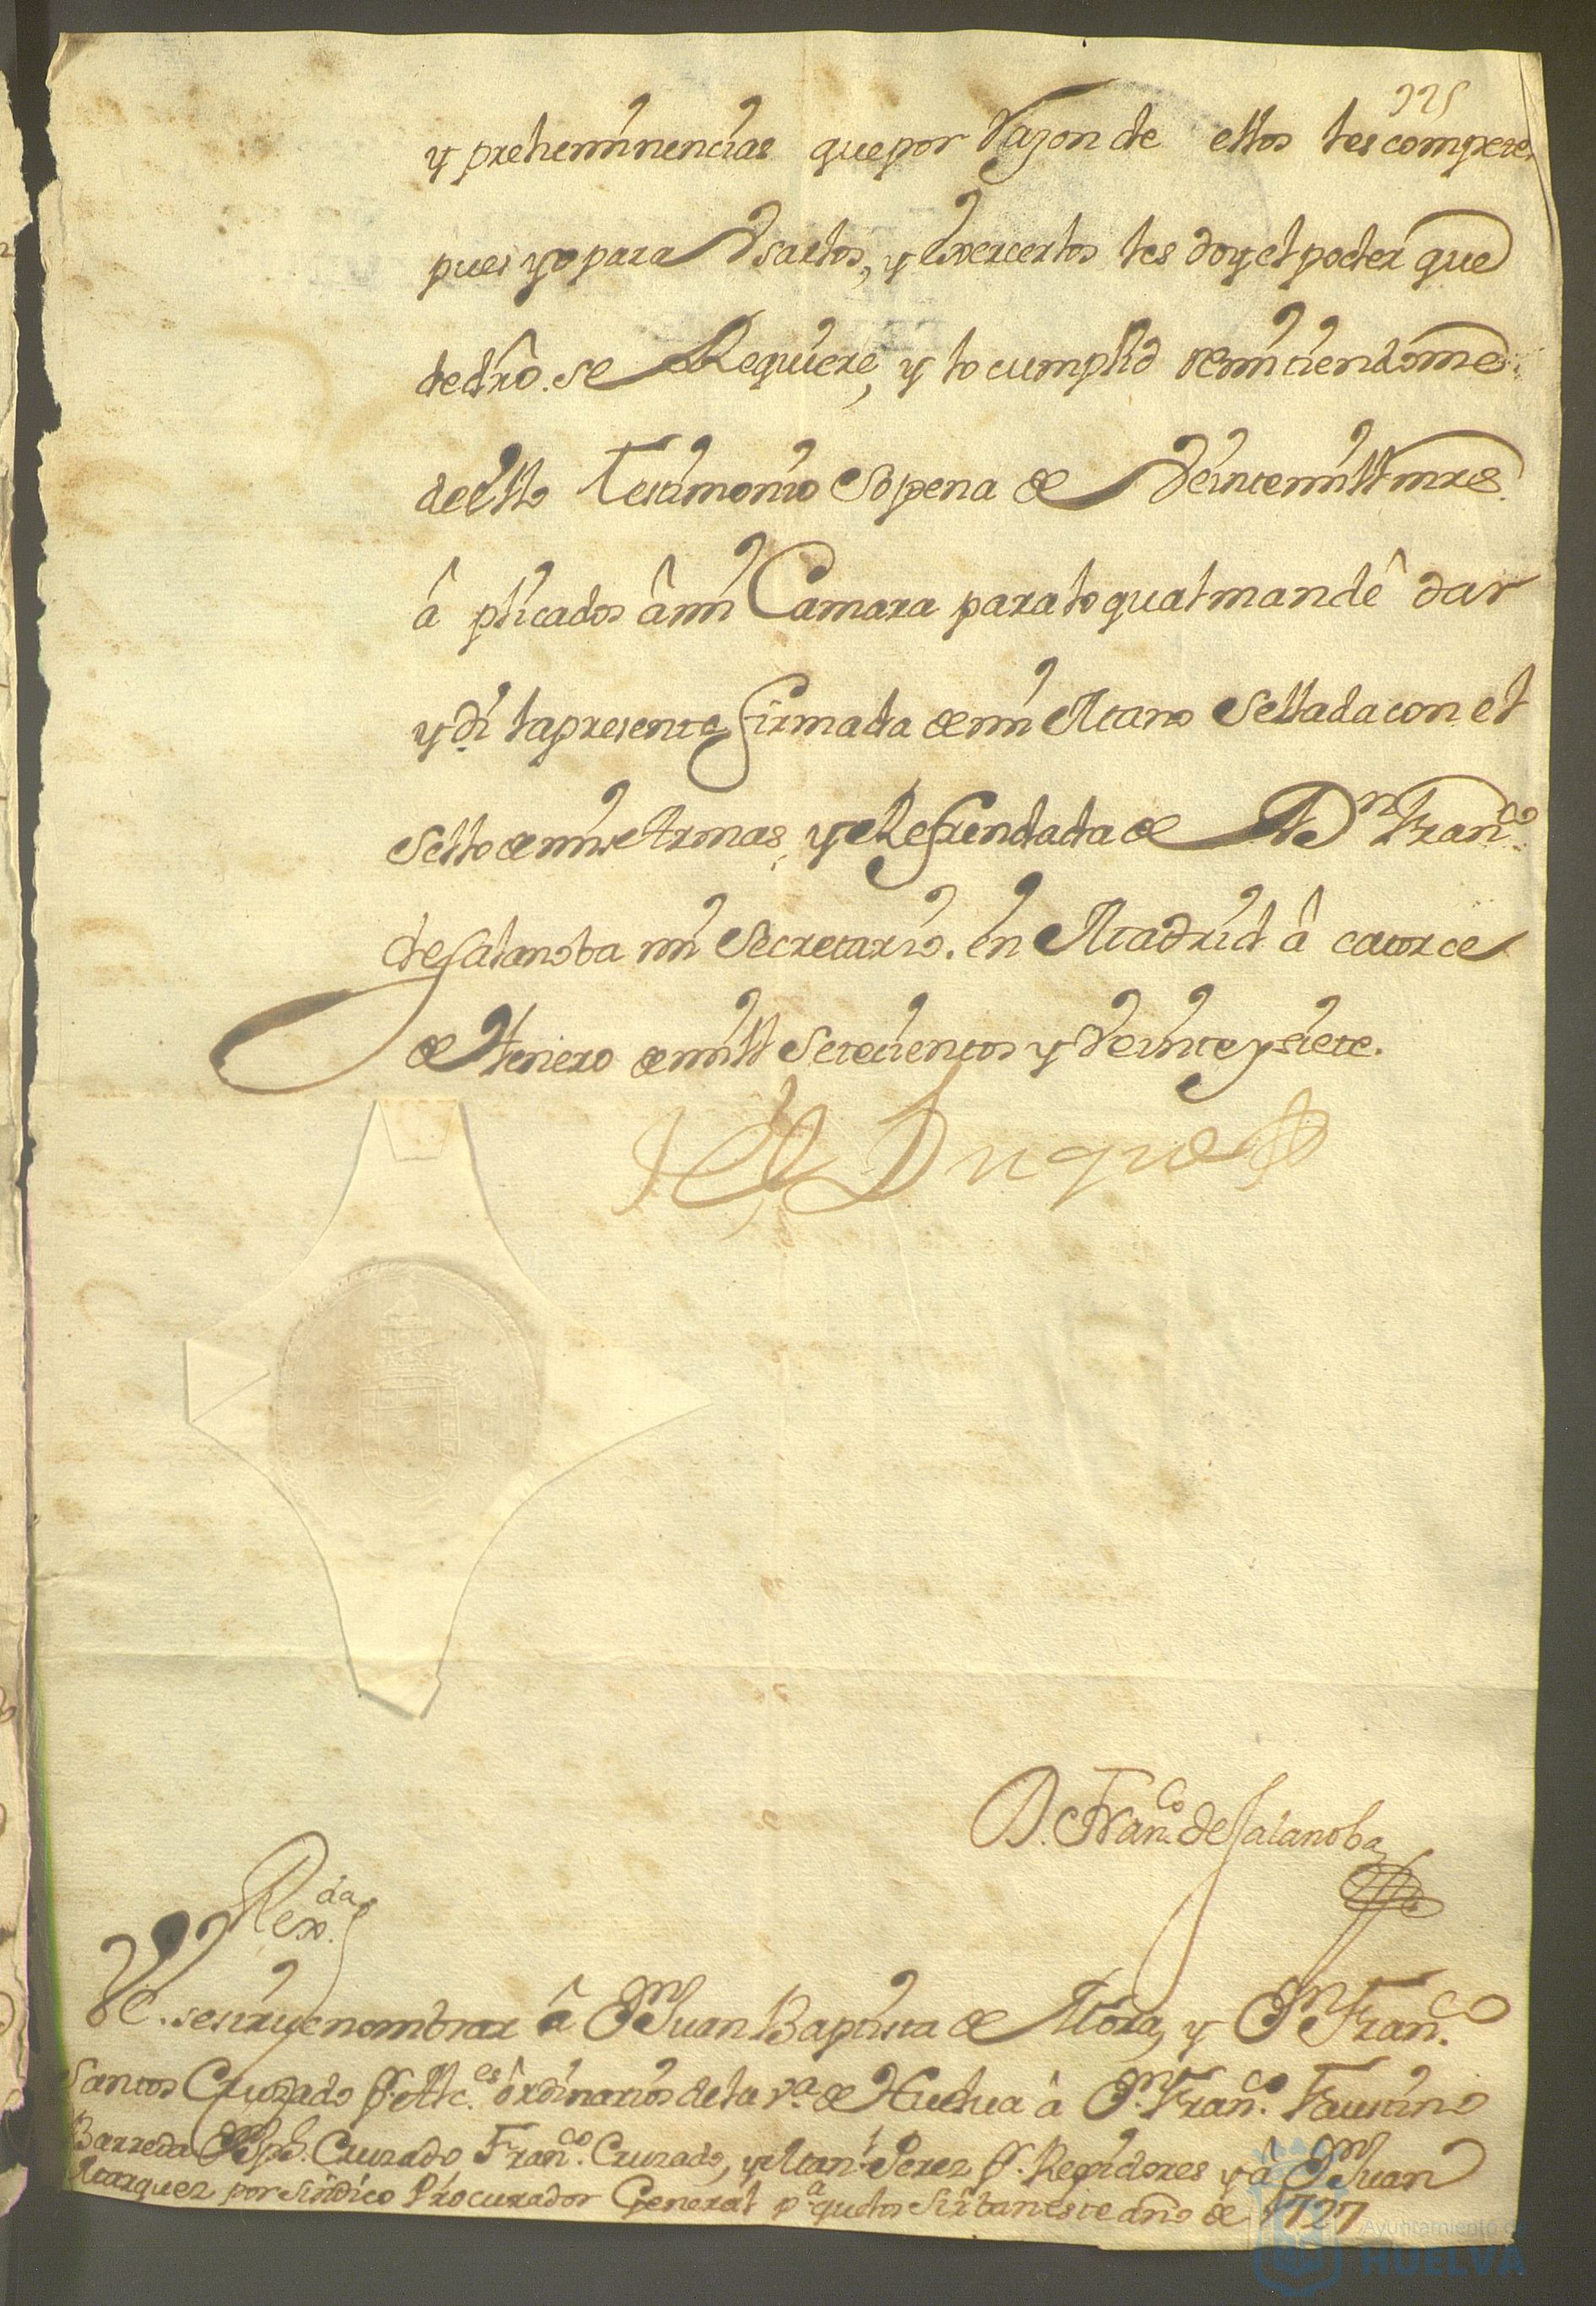 325
y preheminencias que por Razon de ellos les compete,
pues yo para Vsarlos, y Exercerlos les doy el poder que
de dro. se Requiere, y lo cumplid remitiendome
de ello Testimonio So pena de Veinte mill mrs.
â plicados â mi Camara para lo qual mandê dar
y di la presente firmada de mi Mano Sellada con el
Sello de mis Armas, y Refrendada de Dn. Franco.
de Salanoba mi Secretario. en Madrid â catorce
de Henero de mill Setecientos y Veinte y siete.
El Duque
D. Franco. de Salanoba
Rexda.
VE. se sirve nombrar â Dn. Juan Baptista de Mora, y Dn. Franco.
Santos Cruzado Pr. Alces. ôrdinarios de la Va. de Huelva â Dn. Franco. Faustino
Barreda Dn. Jph. Cruzado Franco. Cruzado, y Manl. Perez Pr. Regidores y â Dn. Juan
Marquez por Sindico Procurador General pa. que los Sirban este año de 1727
Ayuntamiento de
HUELVA